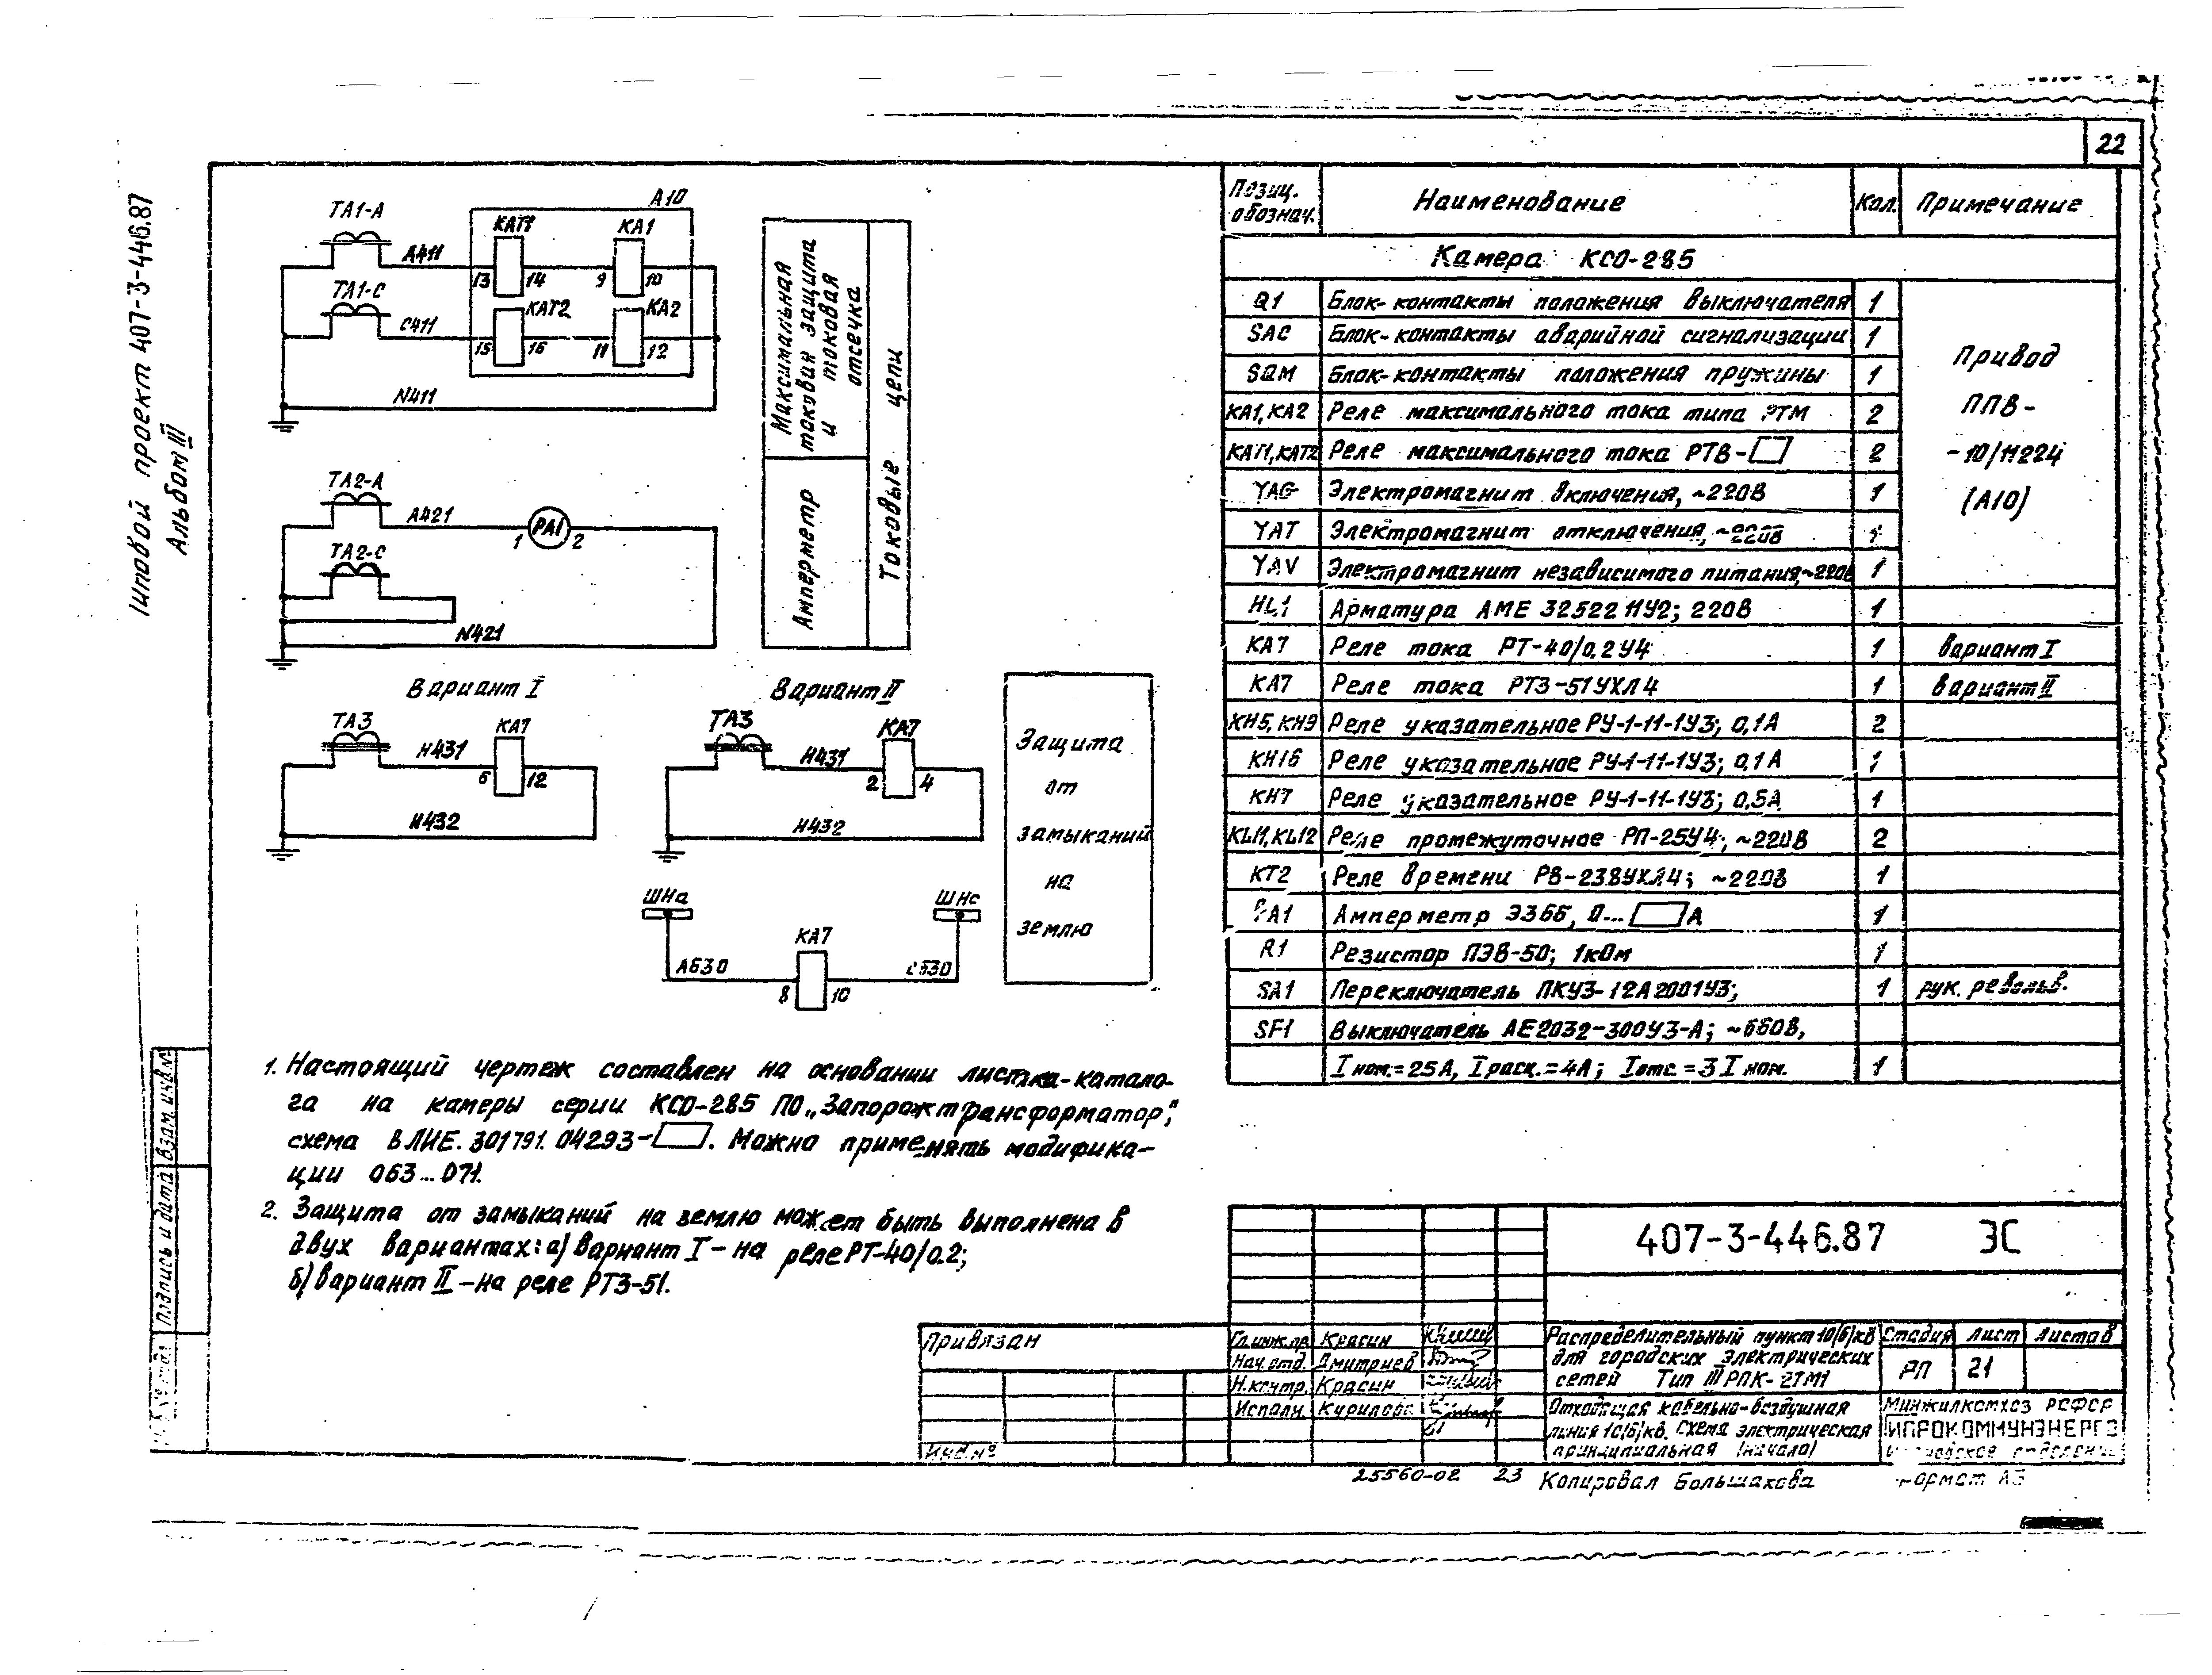 22
Типовой проект 407-3-446.87
Альбом III
ТА1-А
А411
ТА1-С
С411
N411
А10
КАТ1
КА1
13
14
9
10
КАТ2
КА2
15
16
11
12
Максимальная
токовая защита
и
токовая
отсечка
Амперметр
Токовые цепи
ТА2-А
А421
РА1
1
2
ТА2-С
N421
Вариант I
ТА3
КА7
Н431
6
12
Н432
Вариант II
ТА3
КА7
Н431
2
4
Н432
ШНа
ШНс
КА7
А630
С630
8
10
Защита
от
замыканий
на
землю
1. Настоящий чертеж составлен на основании листка-катало-
га на камеры серии КСО-285 ПО „Запорожтрансформатор",
схема ВЛИЕ. 301791. 04293-. Можно применять модифика-
ции 063...071.
2. Защита от замыканий на землю может быть выполнена в
двух вариантах: а) вариант I - на реле РТ-40/0.2;
б) вариант II - на реле РТЗ-51.
Позиц. обознач. Наименование Кол. Примечание
Камера КСО-285
Q1 Блок-контакты положения выключателя 1
SAC Блок-контакты аварийной сигнализации 1
SQM Блок-контакты положения пружины 1
КА1, КА2 Реле максимального тока типа РТМ 2
КАТ1, КАТ2 Реле максимального тока РТВ- 2
YAC Электромагнит включения, ~220В 1
YAT Электромагнит отключения, ~220В 1
YAV Электромагнит независимого питания, ~220В 1
Привод
ППВ-
-10/11224
(А10)
HL1 Арматура АМЕ 325221У2; 220В 1
КА7 Реле тока РТ-40/0.2У4 1 вариант I
КА7 Реле тока РТЗ-51УХЛ4 1 вариант II
КН5, КН9 Реле указательное РУ-1-11-1У3; 0,1А 2
КН16 Реле указательное РУ-1-11-1У3; 0,1А 1
КН7 Реле указательное РУ-1-11-1У3; 0,5А 1
KL11, KL12 Реле промежуточное РП-25У4; ~220В 2
КТ2 Реле времени РВ-238УХЛ4; ~220В 1
РА1 Амперметр Э366, 0... А 1
R1 Резистор ПЭВ-50; 1кОм 1
SA1 Переключатель ПКУ3-12А2001У3; 1 рук. револьв.
SF1 Выключатель АЕ2032-300У3-А; ~660В,
Iном.=25А, Iрасц.=4А; Iотс.=3Iном. 1
407-3-446.87 ЭС
Привязан
Инв.№
Гл.инж.пр. Красин
Нач.отд. Дмитриев
Н.контр. Красин
Исполн. Курилова
Распределительный пункт 10(6)кВ
для городских электрических
сетей Тип III РПК-2ТМ1
Стадия Лист Листов
РП 21
Отходящая кабельно-воздушная
линия 10(6)кВ. Схема электрическая
принципиальная (начало)
Минжилкомхоз РСФСР
ГИПРОКОММУНЭНЕРГО
25560-02 23 Копировал Большакова
Формат А3
Подпись и дата
Взам. инв.№